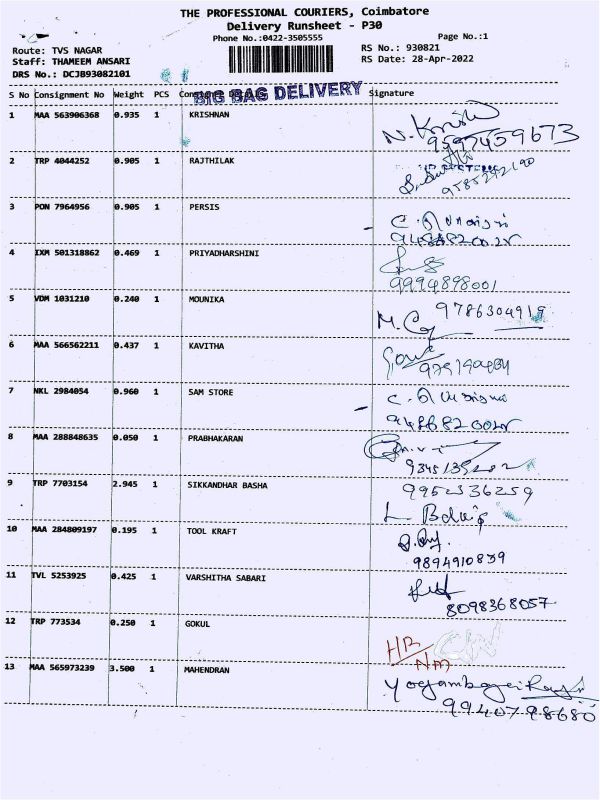 THE PROFESSIONAL COURIERS, Coimbatore
Delivery Runsheet - P30
Phone No.:0422-3505555
Page No.:1
Route: TVS NAGAR
RS No.: 930821
Staff: THAMEEM ANSARI
RS Date: 28-Apr-2022
DRS No.: DCJB93082101
BIG BAG DELIVERY
S No Consignment No Weight PCS Signature
1 MAA 563906368 0.935 1 KRISHNAN
2 TRP 4044252 0.905 1 RAJTHILAK
3 PON 7964956 0.905 1 PERSIS
4 IXM 501318862 0.469 1 PRIYADHARSHINI 9994898001
5 VDM 1031210 0.240 1 MOUNIKA 9786304919
6 MAA 566562211 0.437 1 KAVITHA
7 NKL 2984054 0.960 1 SAM STORE
8 MAA 288848635 0.050 1 PRABHAKARAN
9 TRP 7703154 2.945 1 SIKKANDHAR BASHA 9952336259
10 MAA 284809197 0.195 1 TOOL KRAFT 9894910839
11 TVL 5253925 0.425 1 VARSHITHA SABARI 8098368057
12 TRP 773534 0.250 1 GOKUL
13 MAA 565973239 3.500 1 MAHENDRAN
9940798680